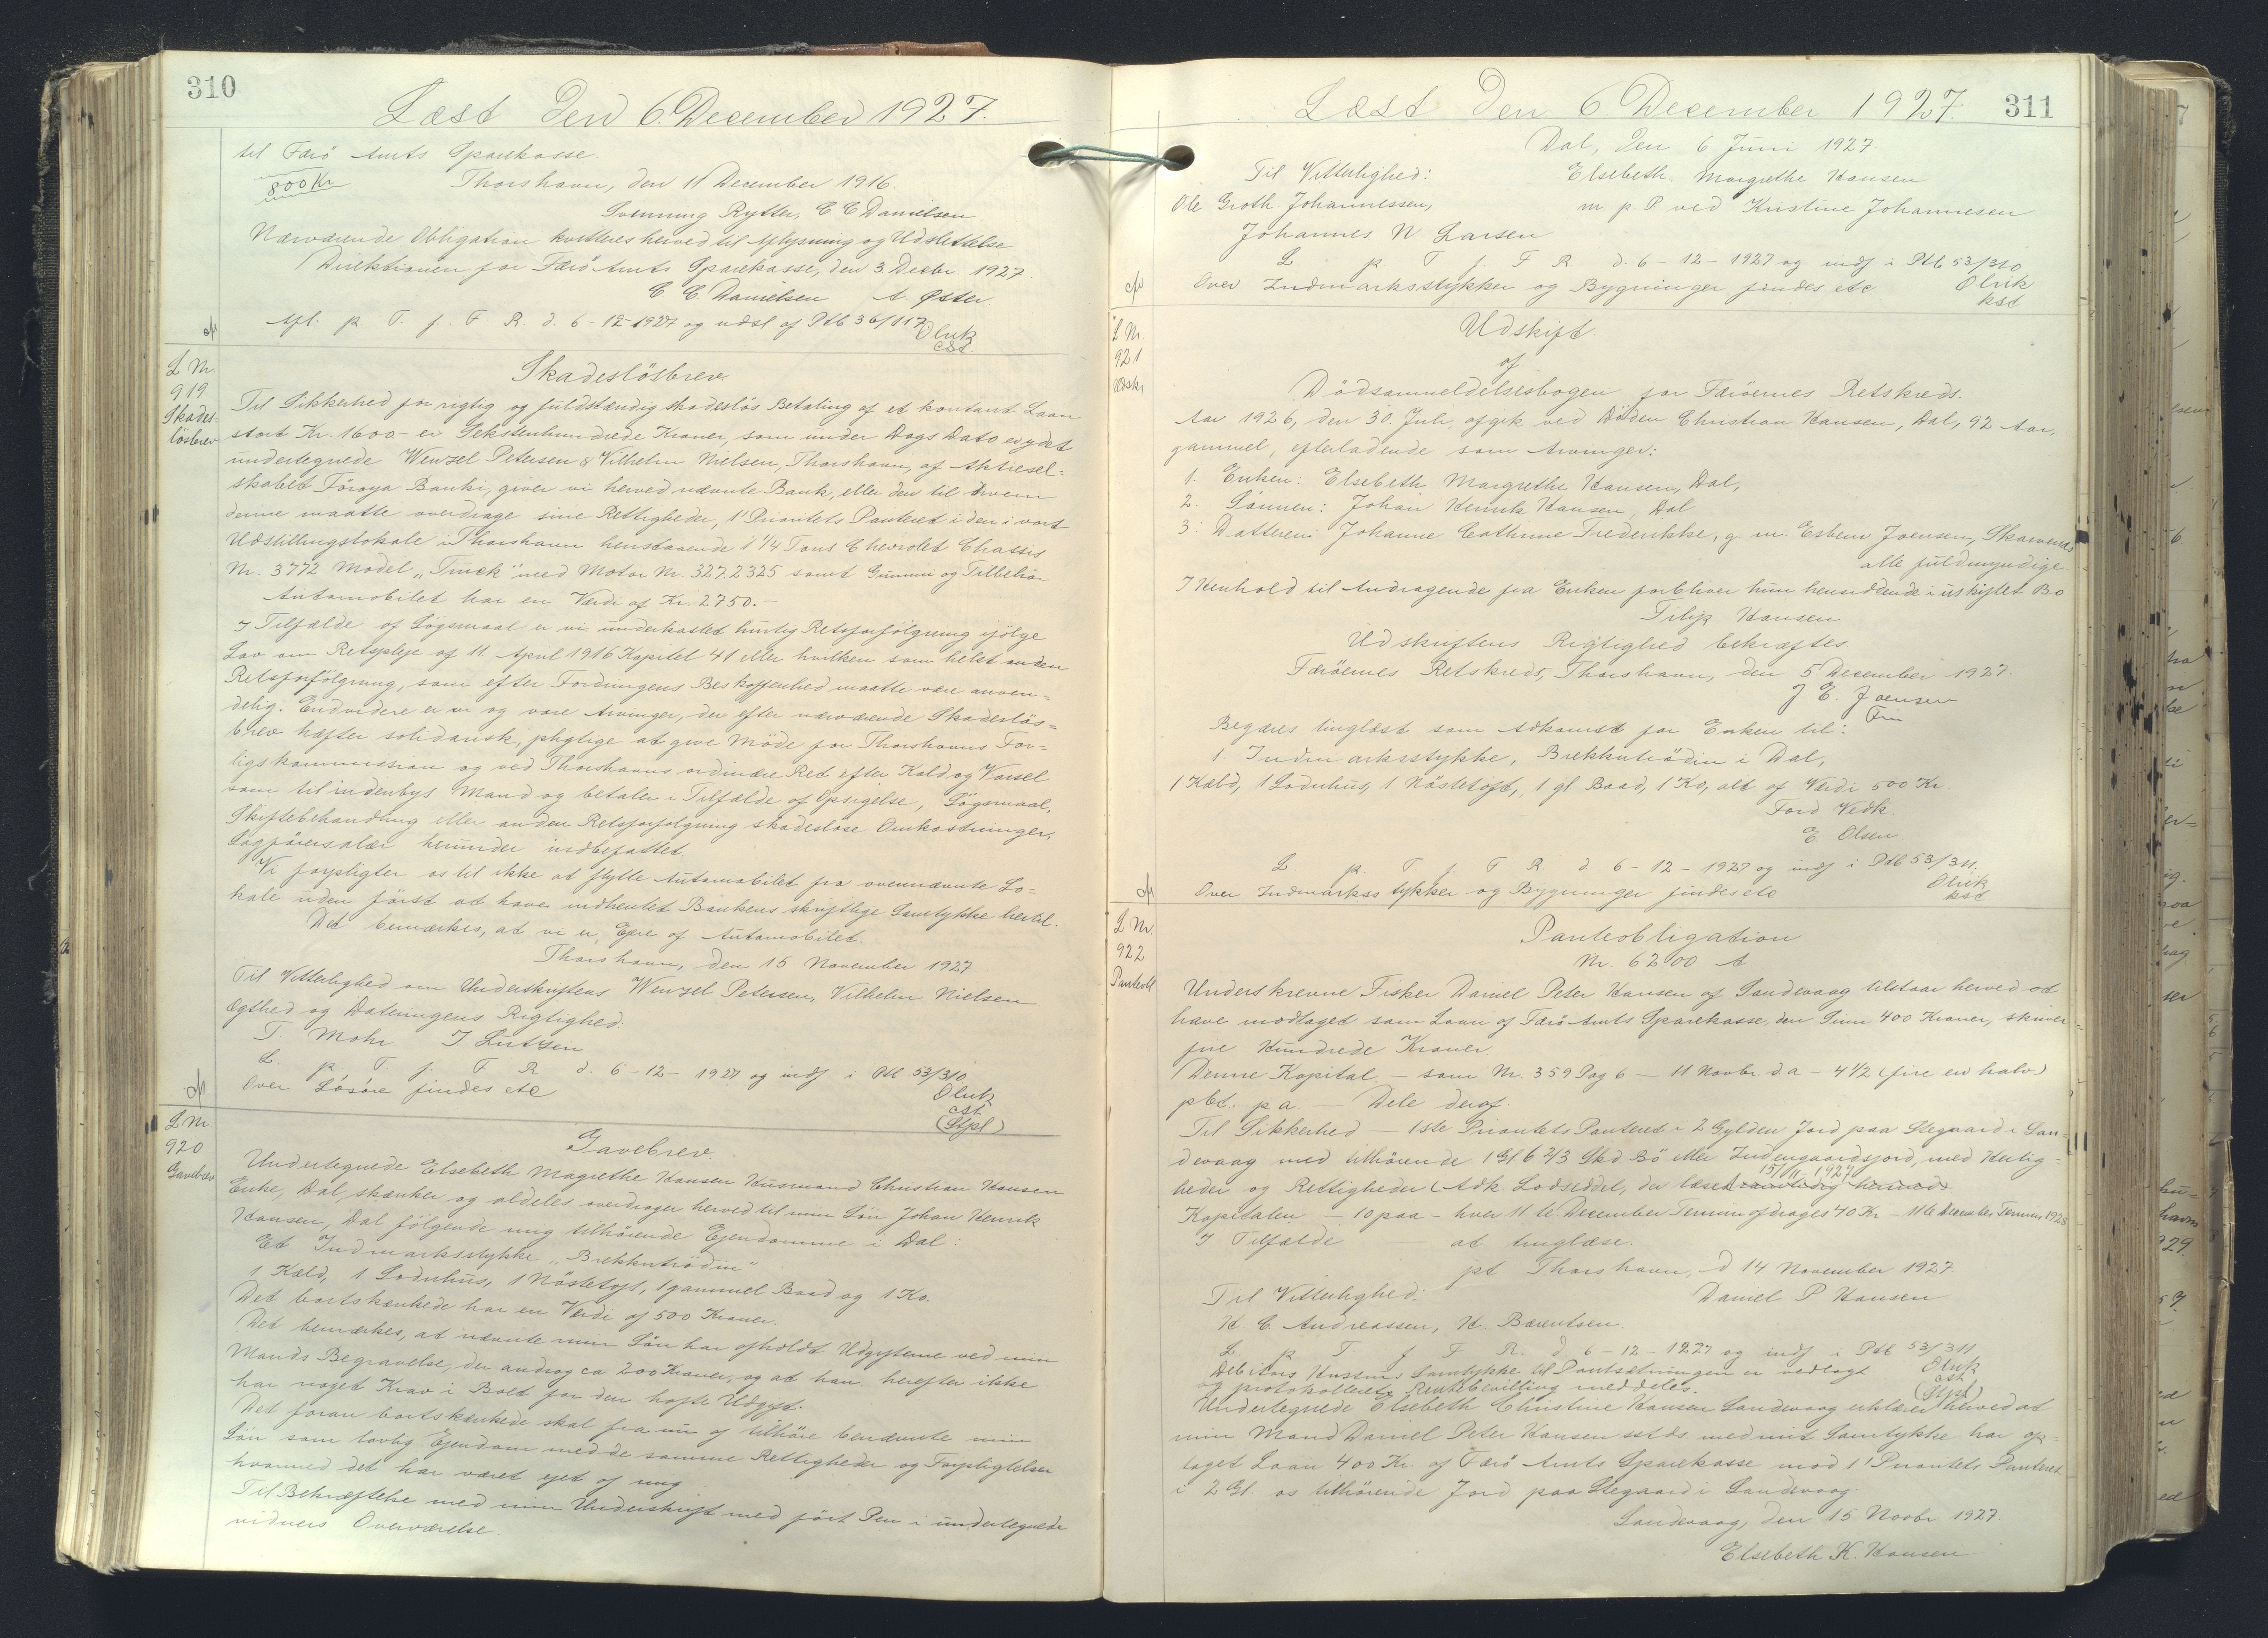 310
Læst den 6. December 1927.
til Færö Amts Sparekasse.
800 Kr
Thorshavn, den 11 December 1916.
Svenning Rytter, C C Danielsen
Nærværende Obligation kvitteres herved til Aflysning og Udslettelse
Direktionen for Færö Amts Sparekasse, den 3 Decbr. 1927.
C C. Danielsen A Øster
Afl. p T. f. F R. d. 6-12-1927 og udsl af Ptb 36/117
Olrik
cst.
L Nr.
919
Skades-
lösbrev
Skadeslösbrev.
Til Sikkerhed for rigtig og fuldstændig skadeslös Betaling af et kontant Laan
stort Kr. 1600.- er Sekstenhundrede Kroner, som under Dags Dato er ydet
undertegnede Wenzel Petersen & Vilhelm Nielsen, Thorshavn, af Aktiesel-
skabet Föroya Banki, giver vi herved nævnte Bank, eller den til hvem
denne maatte overdrage sine Rettigheder, 1' Prioritets Panteret i den i vort
Udstillingslokale i Thorshavn henstaaende 1 1/4 Tons Chevrolet Chassis
Nr. 3772 Model „Truck" med Motor Nr. 3272325 samt Gummi og Tilbehör
Automobilet har en Værdi af Kr. 2750.-
I Tilfælde af Sögsmaal er vi underkastet hurtig Retsforfölgning ifölge
Lov om Retspleje af 11. April 1916 Kapitel 41 eller hvilken som helst anden
Retsforfölgning, som efter Fordringens Beskaffenhed maatte være anven-
delig. Endvidere er vi og vore Arvinger, der efter nærværende Skadeslös-
brev hæfter solidarisk, pligtige at give Möde for Thorshavns For-
ligskommission og ved Thorshavns ordinære Ret efter Kald og Varsel
som til indenbys Mand og betaler i Tilfælde af Opsigelse, Sögsmaal,
Skiftebehandling eller anden Retsforfölgning skadeslöse Omkostninger,
Sagförersalær herunder indbefattet.
Vi forpligter os til ikke at flytte Automobilet fra ovennævnte Lo-
kale uden först at have indhentet Bankens skriftlige Samtykke hertil.
Det bemærkes, at vi er Ejere af Automobilet.
Thorshavn, den 15 November 1927
Til Vitterlighed om Underskriftens Wenzel Petersen, Vilhelm Nielsen
Ægthed og Dateringens Rigtighed.
T. Mohr J Lützen
L p T. f. F R d. 6-12-1927 og indf i Ptb 53/310
Over Lösöre findes etc
Olrik
cst
(Stpl)
L Nr
920
Gavebrev
Gavebrev.
Undertegnede Elsebeth Magrethe Hansen Husmand Christian Hansen
Enke, Dal, skænker og aldeles overdrager herved til min Sön Johan Henrik
Hansen, Dal fölgende mig tilhörende Ejendomme i Dal:
Et Indmarksstykke „Brekkutrödin"
1 Kæld, 1 Soduhus, 1 Nöstetoft, 1 gammel Baad og 1 Ko.
Det bortskænkede har en Værdi af 500 Kroner.
Det bemærkes, at nævnte min Sön har afholdt Udgifterne ved min
Mands Begravelse, der androg ca 200 Kroner, og at han herefter ikke
har noget Krav i Boet for den hafte Udgift.
Det foran bortskænkede skal fra nu af tilhöre benævnte min
Sön som lovlig Ejendom med de samme Rettigheder og Forpligtelser
hvormed det har været ejet af mig
Til Bekræftelse med min Underskrift med fört Pen i undertegnede
vidners Overværelse.
311
Læst den 6 December 1927.
Dal, den 6 Juni 1927.
Til Vitterlighed: Elsebeth Margrethe Hansen
Ole Groth Johannessen, m. p. P ved Kristine Johannesen
Johannes N Larsen
L p T f F R d. 6-12-1927 og indf i Ptb 53/310
Over Indmarksstykker og Bygninger findes etc
Olrik
kst
L Nr.
921
Udskr
Udskift.
af
Dödsanmeldelsesbogen for Færöernes Retskreds.
Aar 1926, den 30. Juli, afgik ved Döden Christian Hansen, Dal, 92 Aar,
gammel, efterladende som Arvinger:
1. Enken: Elsebeth Margrethe Hansen, Dal,
2. Sönnen: Johan Henrik Hansen, Dal
3: Datteren: Johanne Cathrine Frederikke, g. m. Esbern Joensen, Skarvenes
alle fuldmyndige.
I Henhold til Andragende fra Enken forbliver hun hensiddende i uskiftet Bo
Filip Hansen
Udskriftens Rigtighed bekræftes
Færöernes Retskreds, Thorshavn, den 5 December 1927.
J E. Joensen
Fm
Begæres tinglæst som Adkomst for Enken til:
1. Indmarksstykke, Brekkutrödin i Dal,
1 Kæld, 1 Soduhus, 1 Nöstetoft, 1 gl Baad, 1 Ko, alt af Værdi 500 Kr.
Ford Vedk.
E. Olsen
L p. T f F R d. 6-12-1927 og indf i Ptb 53/311.
Over Indmarksstykker og Bygninger findes etc
Olrik
kst
L Nr.
922
Panteobl
Panteobligation
Nr. 6200 A
Underskrevne Fisker Daniel Peter Hansen af Sandevaag tilstaar herved at
have modtaget som Laan af Færö Amts Sparekasse, den Sum 400 Kroner, skriver
fire Hundrede Kroner
Denne Kapital - som Nr. 359 Pag 6 - 11 Novbr. d.a - 4 1/2 (fire en halv)
pCt. p a. - Dele deraf.
Til Sikkerhed - 1ste Prioritets Panteret i 2 Gylden Jord paa Stegaard i San-
devaag med tilhörende 1 Gl 6 2/3 Skd Bö eller Indengaardsjord, med Herlig-
heder og Rettigheder (Adk. Lodseddel, der læses samtidig hermed 15/11. 1927)
Kapitalen - 10 paa - hver 11 te December Termin afdrages 40 Kr - 11te December Termin 1928
I Tilfælde - at tinglæse.
pt Thorshavn, d 14 November 1927
Til Vitterlighed: Daniel P Hansen
H. C. Andreassen, H. Bærentsen.
L. p T f F R. d. 6-12-1927 og indf i Ptb 53/311
Debitors Hustrus Samtykke til Pantsætningen er vedlagt
og protokolleret. Rentebevilling meddeles.
Olrik
cst
(Stpl)
Undertegnede Elsebeth Christine Hansen Sandevaag erklærer herved at
min Mand Daniel Peter Hansen sstds. med mit Samtykke har op-
taget Laan 400 Kr. af Færö Amts Sparekasse mod 1' Prioritets Panteret
i 2 Gl. os tilhörende Jord paa Stegaard i Sandevaag.
Sandevaag, den 15 Novbr 1927.
Elsebeth K. Hansen